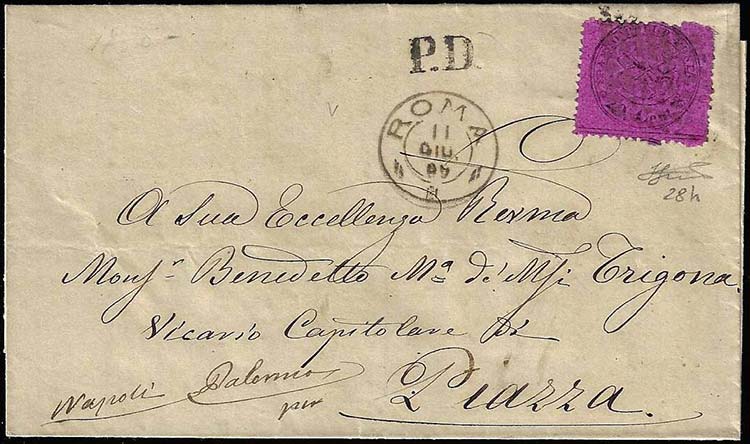 P.D.
ROMA
11
GIU.
69
A Sua Eccellenza Revma
Monsr. Benedetto Ma. de' Msi Trigona
Vicario Capitolare di
Piazza.
Napoli Palermo
per
28h